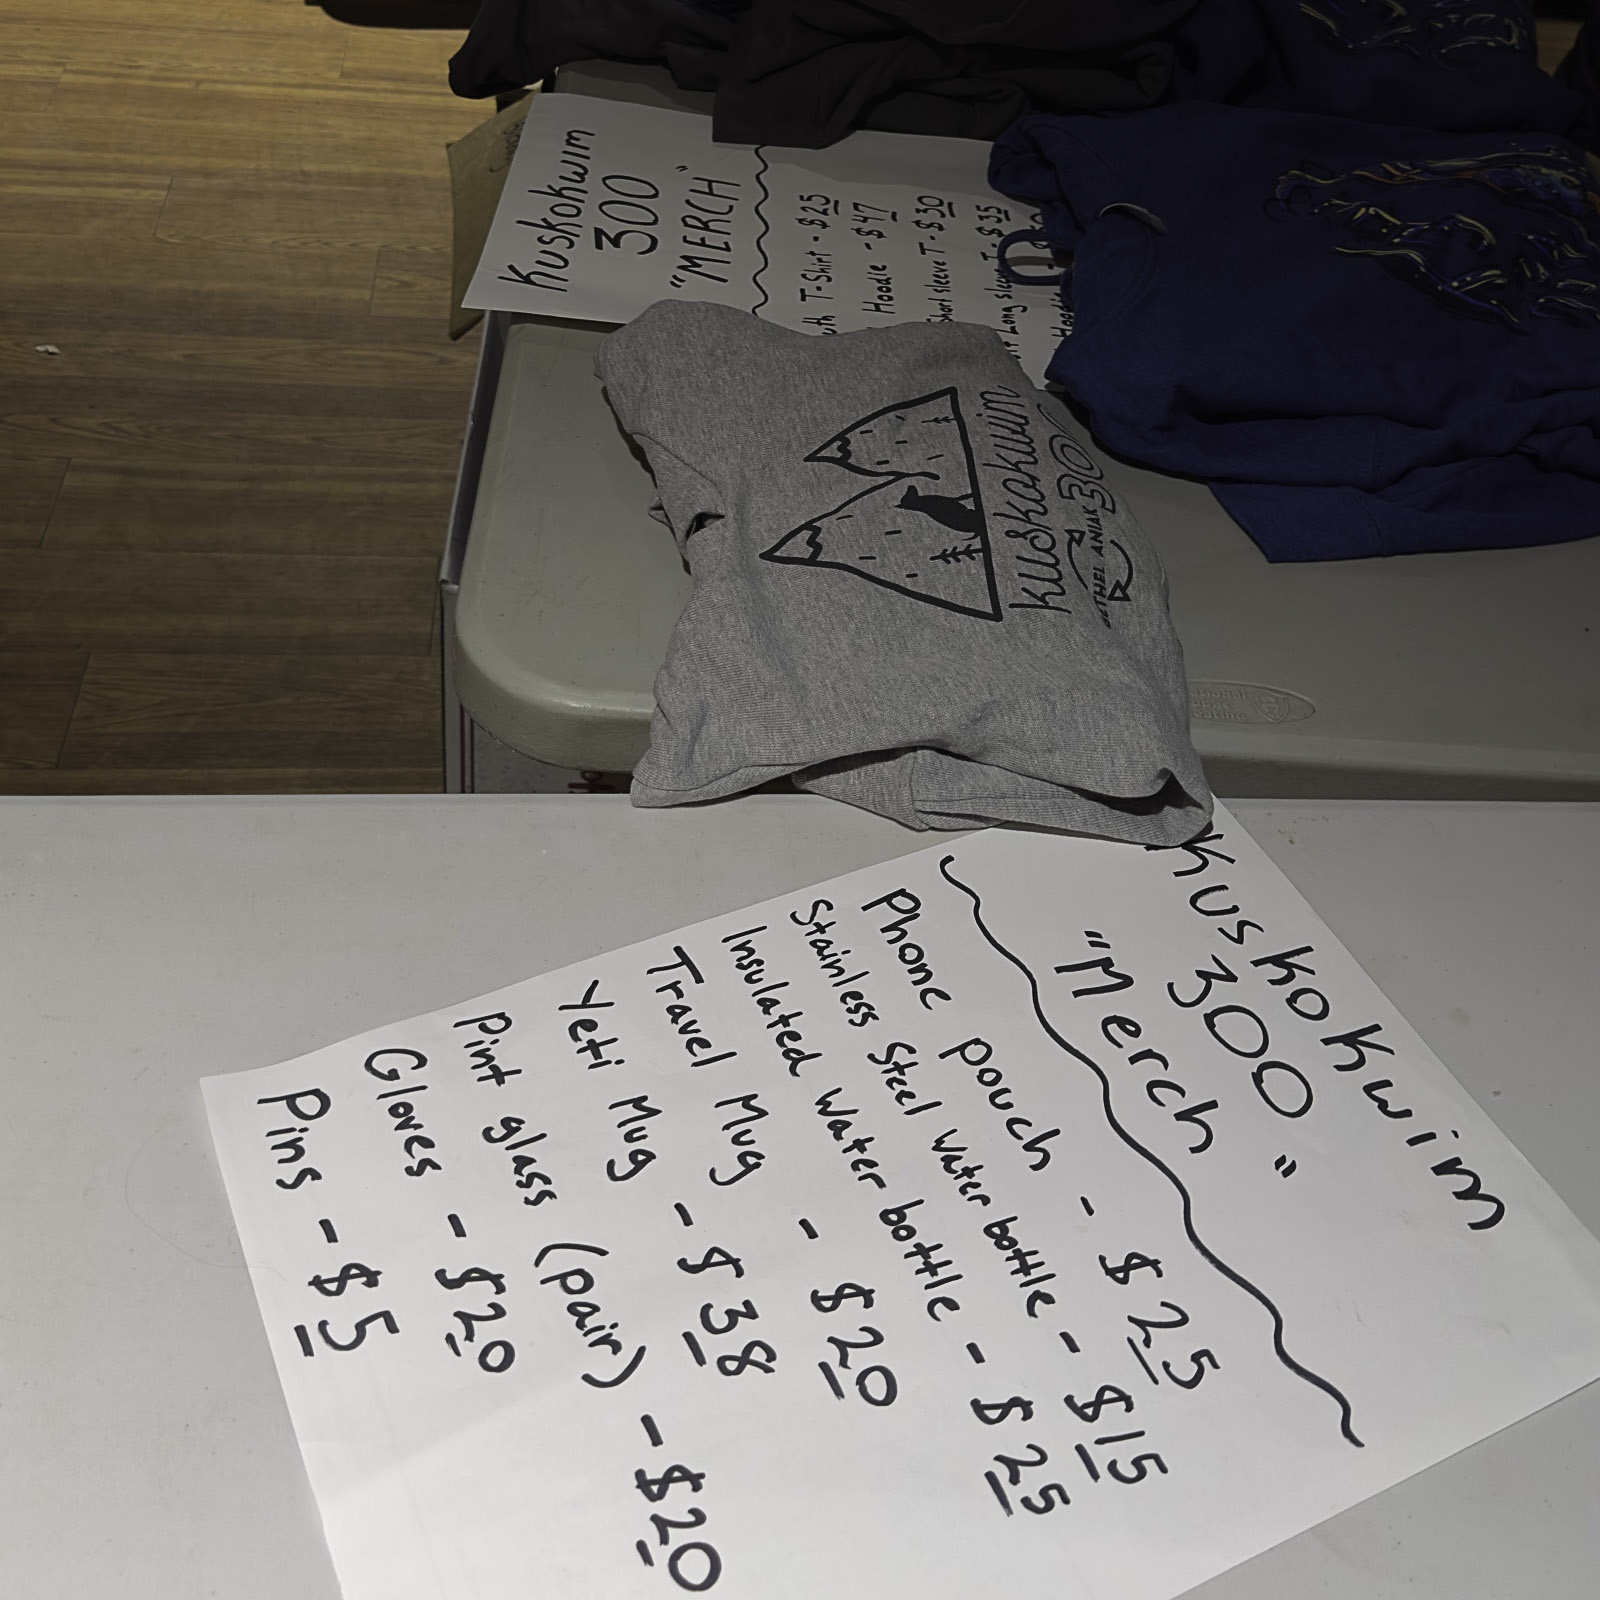 Kuskokwim
300
"MERCH"
T-Shirt - $25
Hoodie - $47
Short sleeve T - $30
Long sleeve T - $35
Kuskokwim
300
ANIAK
Kuskokwim
300
"Merch"
Phone pouch - $25
Stainless Steel Water bottle - $15
Insulated Water bottle - $25
Travel Mug - $20
Yeti Mug - $38
Pint glass (pair) - $20
Gloves - $20
Pins - $5